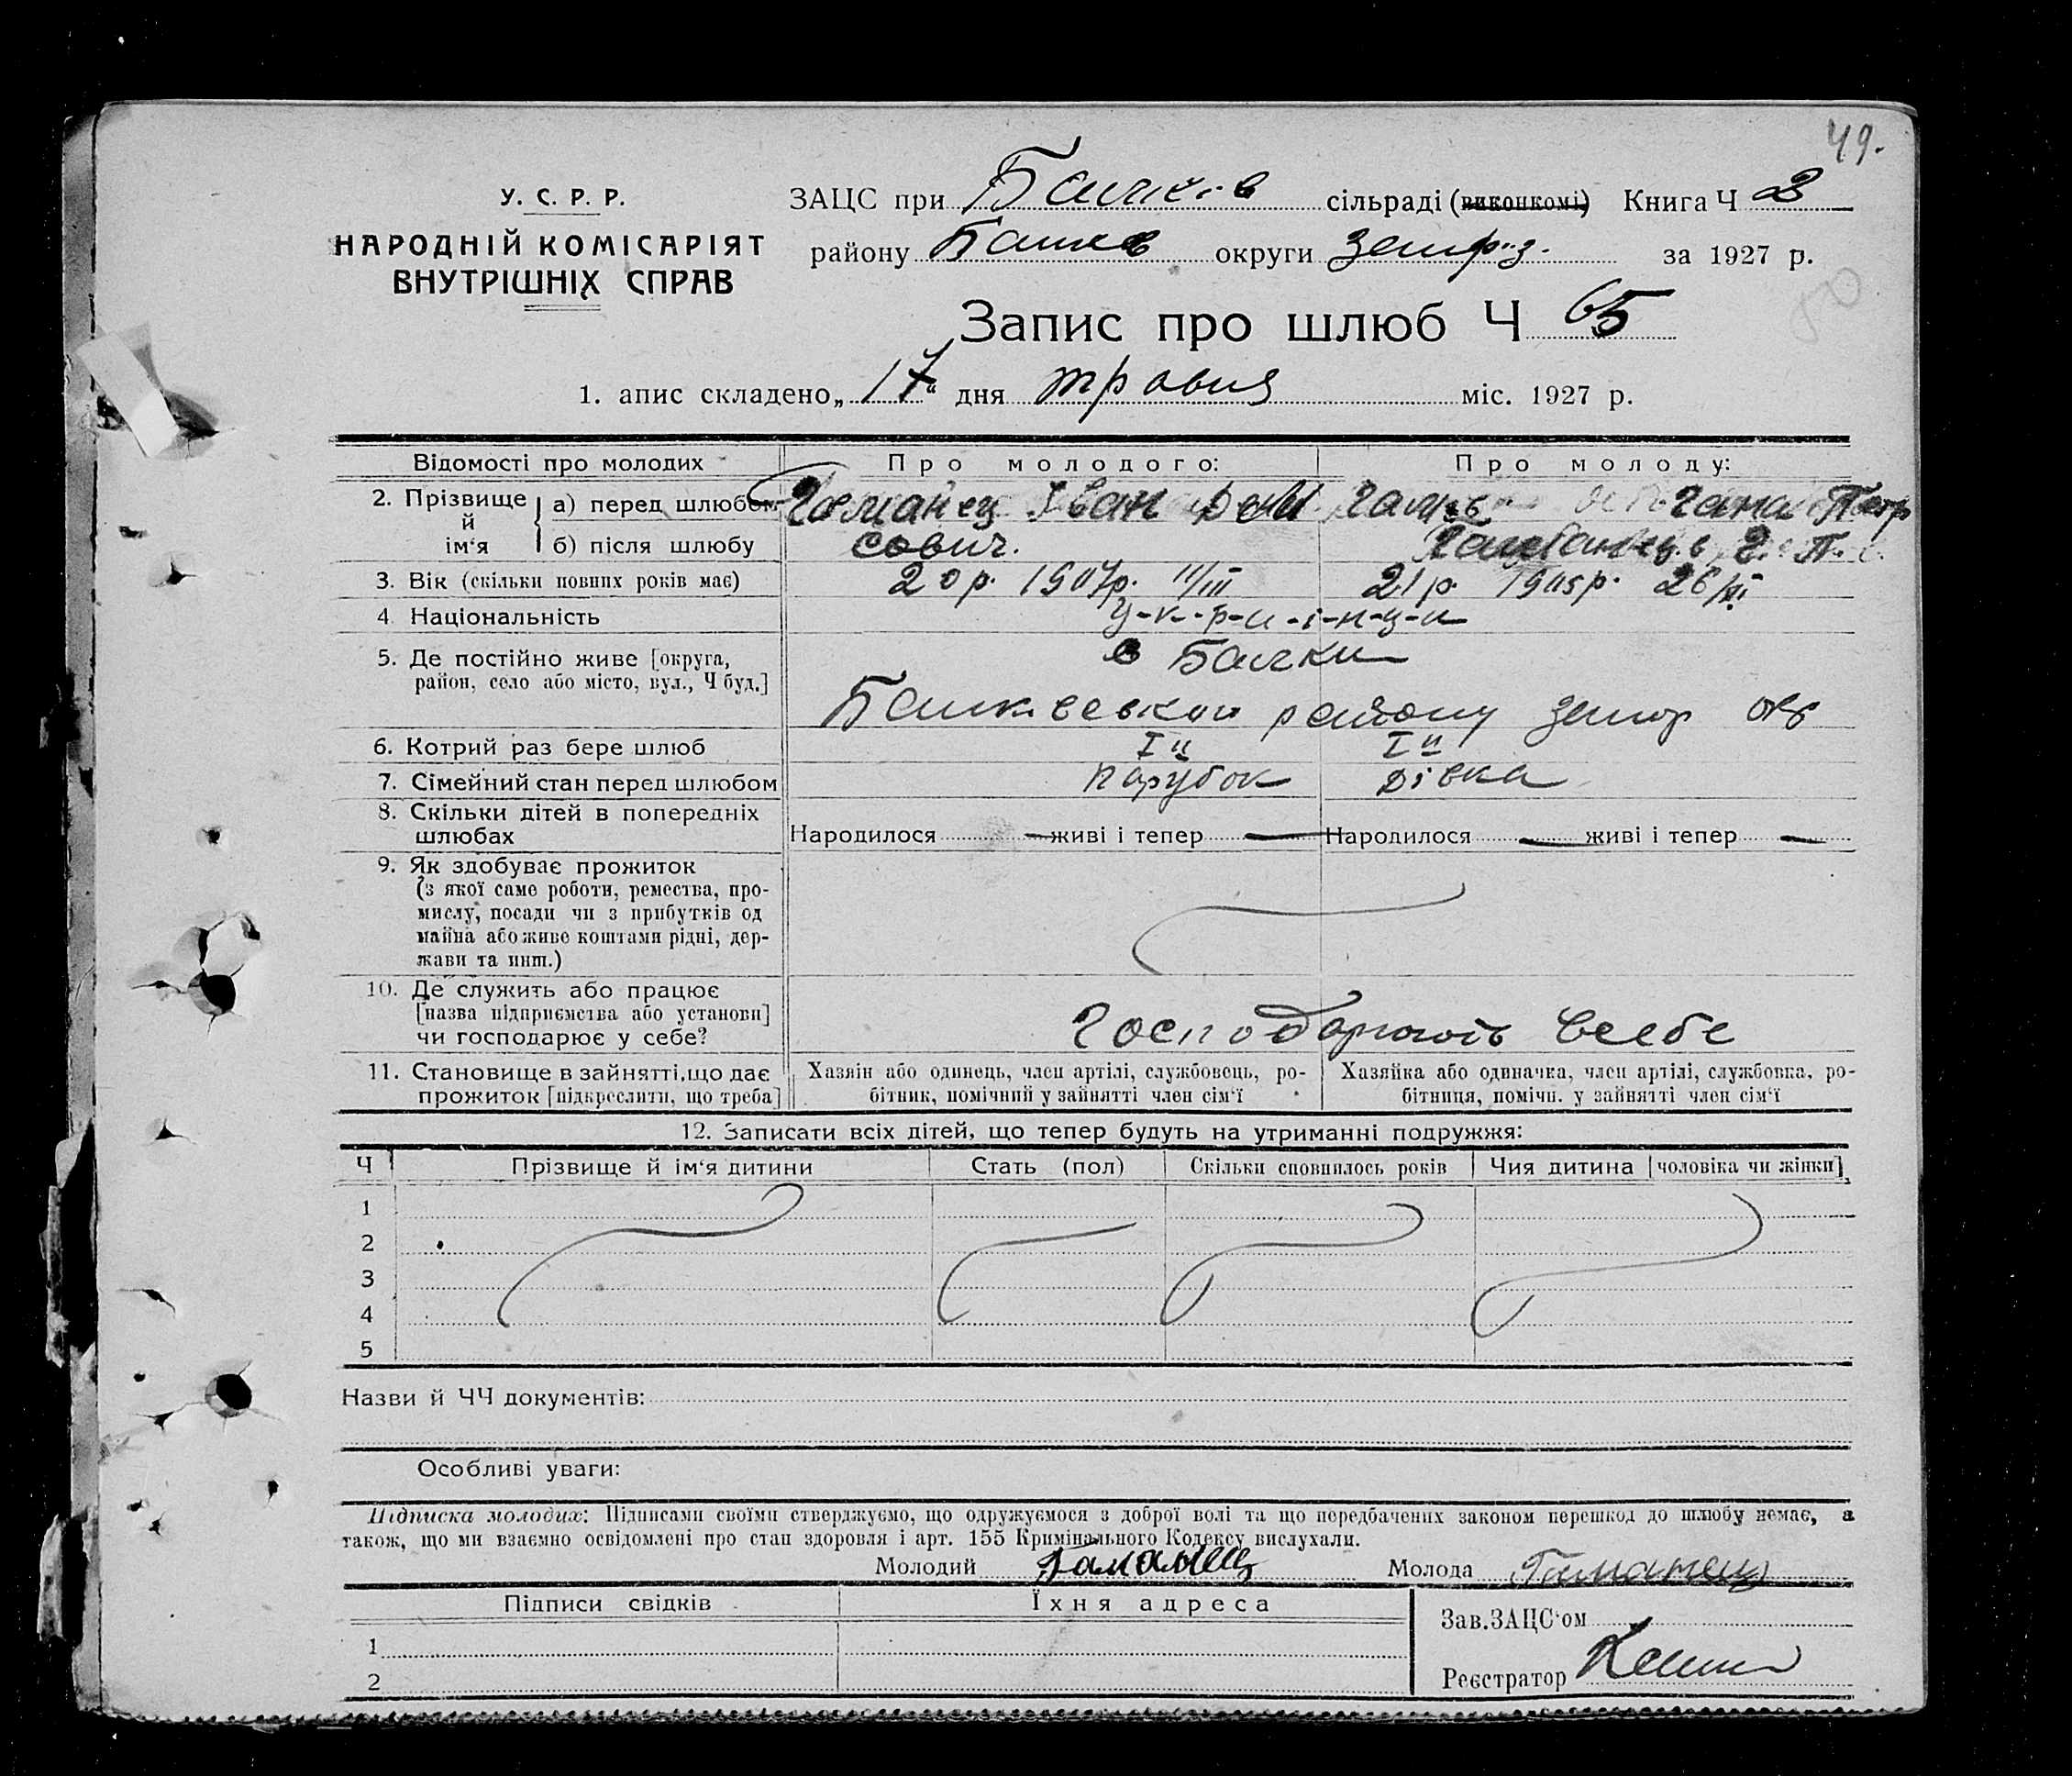 49.
У. С. Р. Р.
НАРОДНІЙ КОМІСАРІЯТ
ВНУТРІШНІХ СПРАВ
ЗАЦС при Балків сільраді (виконкомі) Книга Ч 2
району Балків округи Запоріз. за 1927 р.
50
Запис про шлюб Ч 65
1. апис складено „17“ дня травня міс. 1927 р.
Відомості про молодих Про молодого: Про молоду:
2. Прізвище й ім‘я
а) перед шлюбом Гаманец Іван Петр
б) після шлюбу сович. Г. П.
3. Вік (скільки повних років має) 20 р. 1907р. 11/III 21 р. 1905р.
4. Національність У-к-р-а-ї-н-ц-и
5. Де постійно живе [округа, район, село або місто, вул., Ч буд.] с Балки
района Запор окр
6. Котрий раз бере шлюб I й I й
7. Сімейний стан перед шлюбом парубок дівка
8. Скільки дітей в попередніх шлюбах Народилося — живі і тепер — Народилося — живі і тепер —
9. Як здобуває прожиток
(з якої саме роботи, ремества, про-
мислу, посади чи з прибутків од
майна або живе коштами рідні, дер-
жави та инш.)
10. Де служить або працює
[назва підприємства або установи]
чи господарює у себе? Господарюють в себе
11. Становище в зайнятті, що дає прожиток [підкреслити, що треба]
Хазяїн або одинець, член артілі, службовець, ро-
бітник, помічний у зайнятті член сім‘ї
Хазяйка або одиначка, член артілі, службовка, ро-
бітниця, помічн. у зайнятті член сім‘ї
12. Записати всіх дітей, що тепер будуть на утриманні подружжя:
Ч Прізвище й ім‘я дитини Стать (пол) Скільки сповнилось років Чия дитина [чоловіка чи жінки]
1
2
3
4
5
Назви й ЧЧ документів:
Особливі уваги:
Підписка молодих: Підписами своїми стверджуємо, що одружуємося з доброї волі та що передбачених законом перешкод до шлюбу немає, а
також, що ми взаємно освідомлені про стан здоровля і арт. 155 Кримінального Кодексу вислухали.
Молодий Гаманець Молода Гаманец
Підписи свідків Їхня адреса
1
2
Зав.ЗАЦС‘ом
Реєстратор